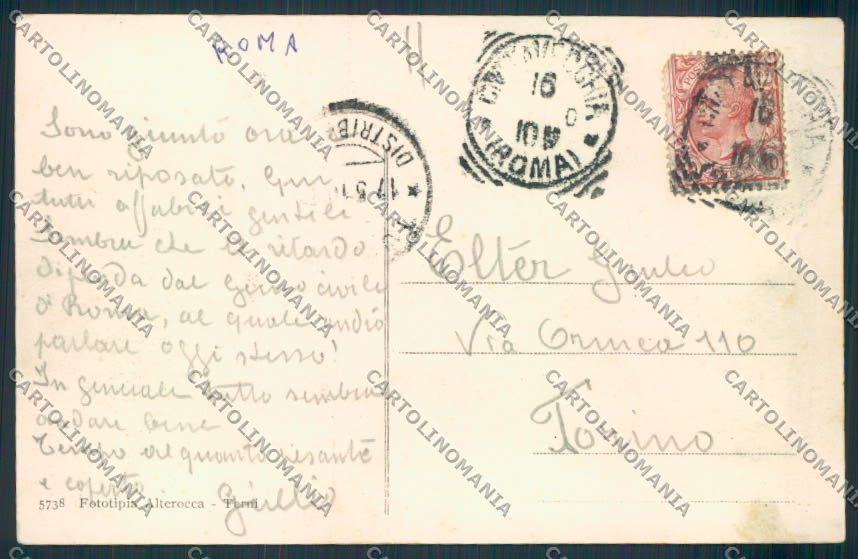 ROMA
CIVITAVECCHIA
16
10 M
(ROMA)
DISTRIB
Sono giunto ora
ben riposato. Qui
tutti affabili gentili
Sembra che il ritardo
dipenda dal Genio civile
di Roma, al quale andrò
parlare oggi stesso!
In generale tutto sembra
andare bene
Tempo alquanto pesante
e coperto
Giulio
Elter Giulio
Via Ormea 110
Torino
5738 Fototipia Alterocca - Terni
CARTOLINOMANIA